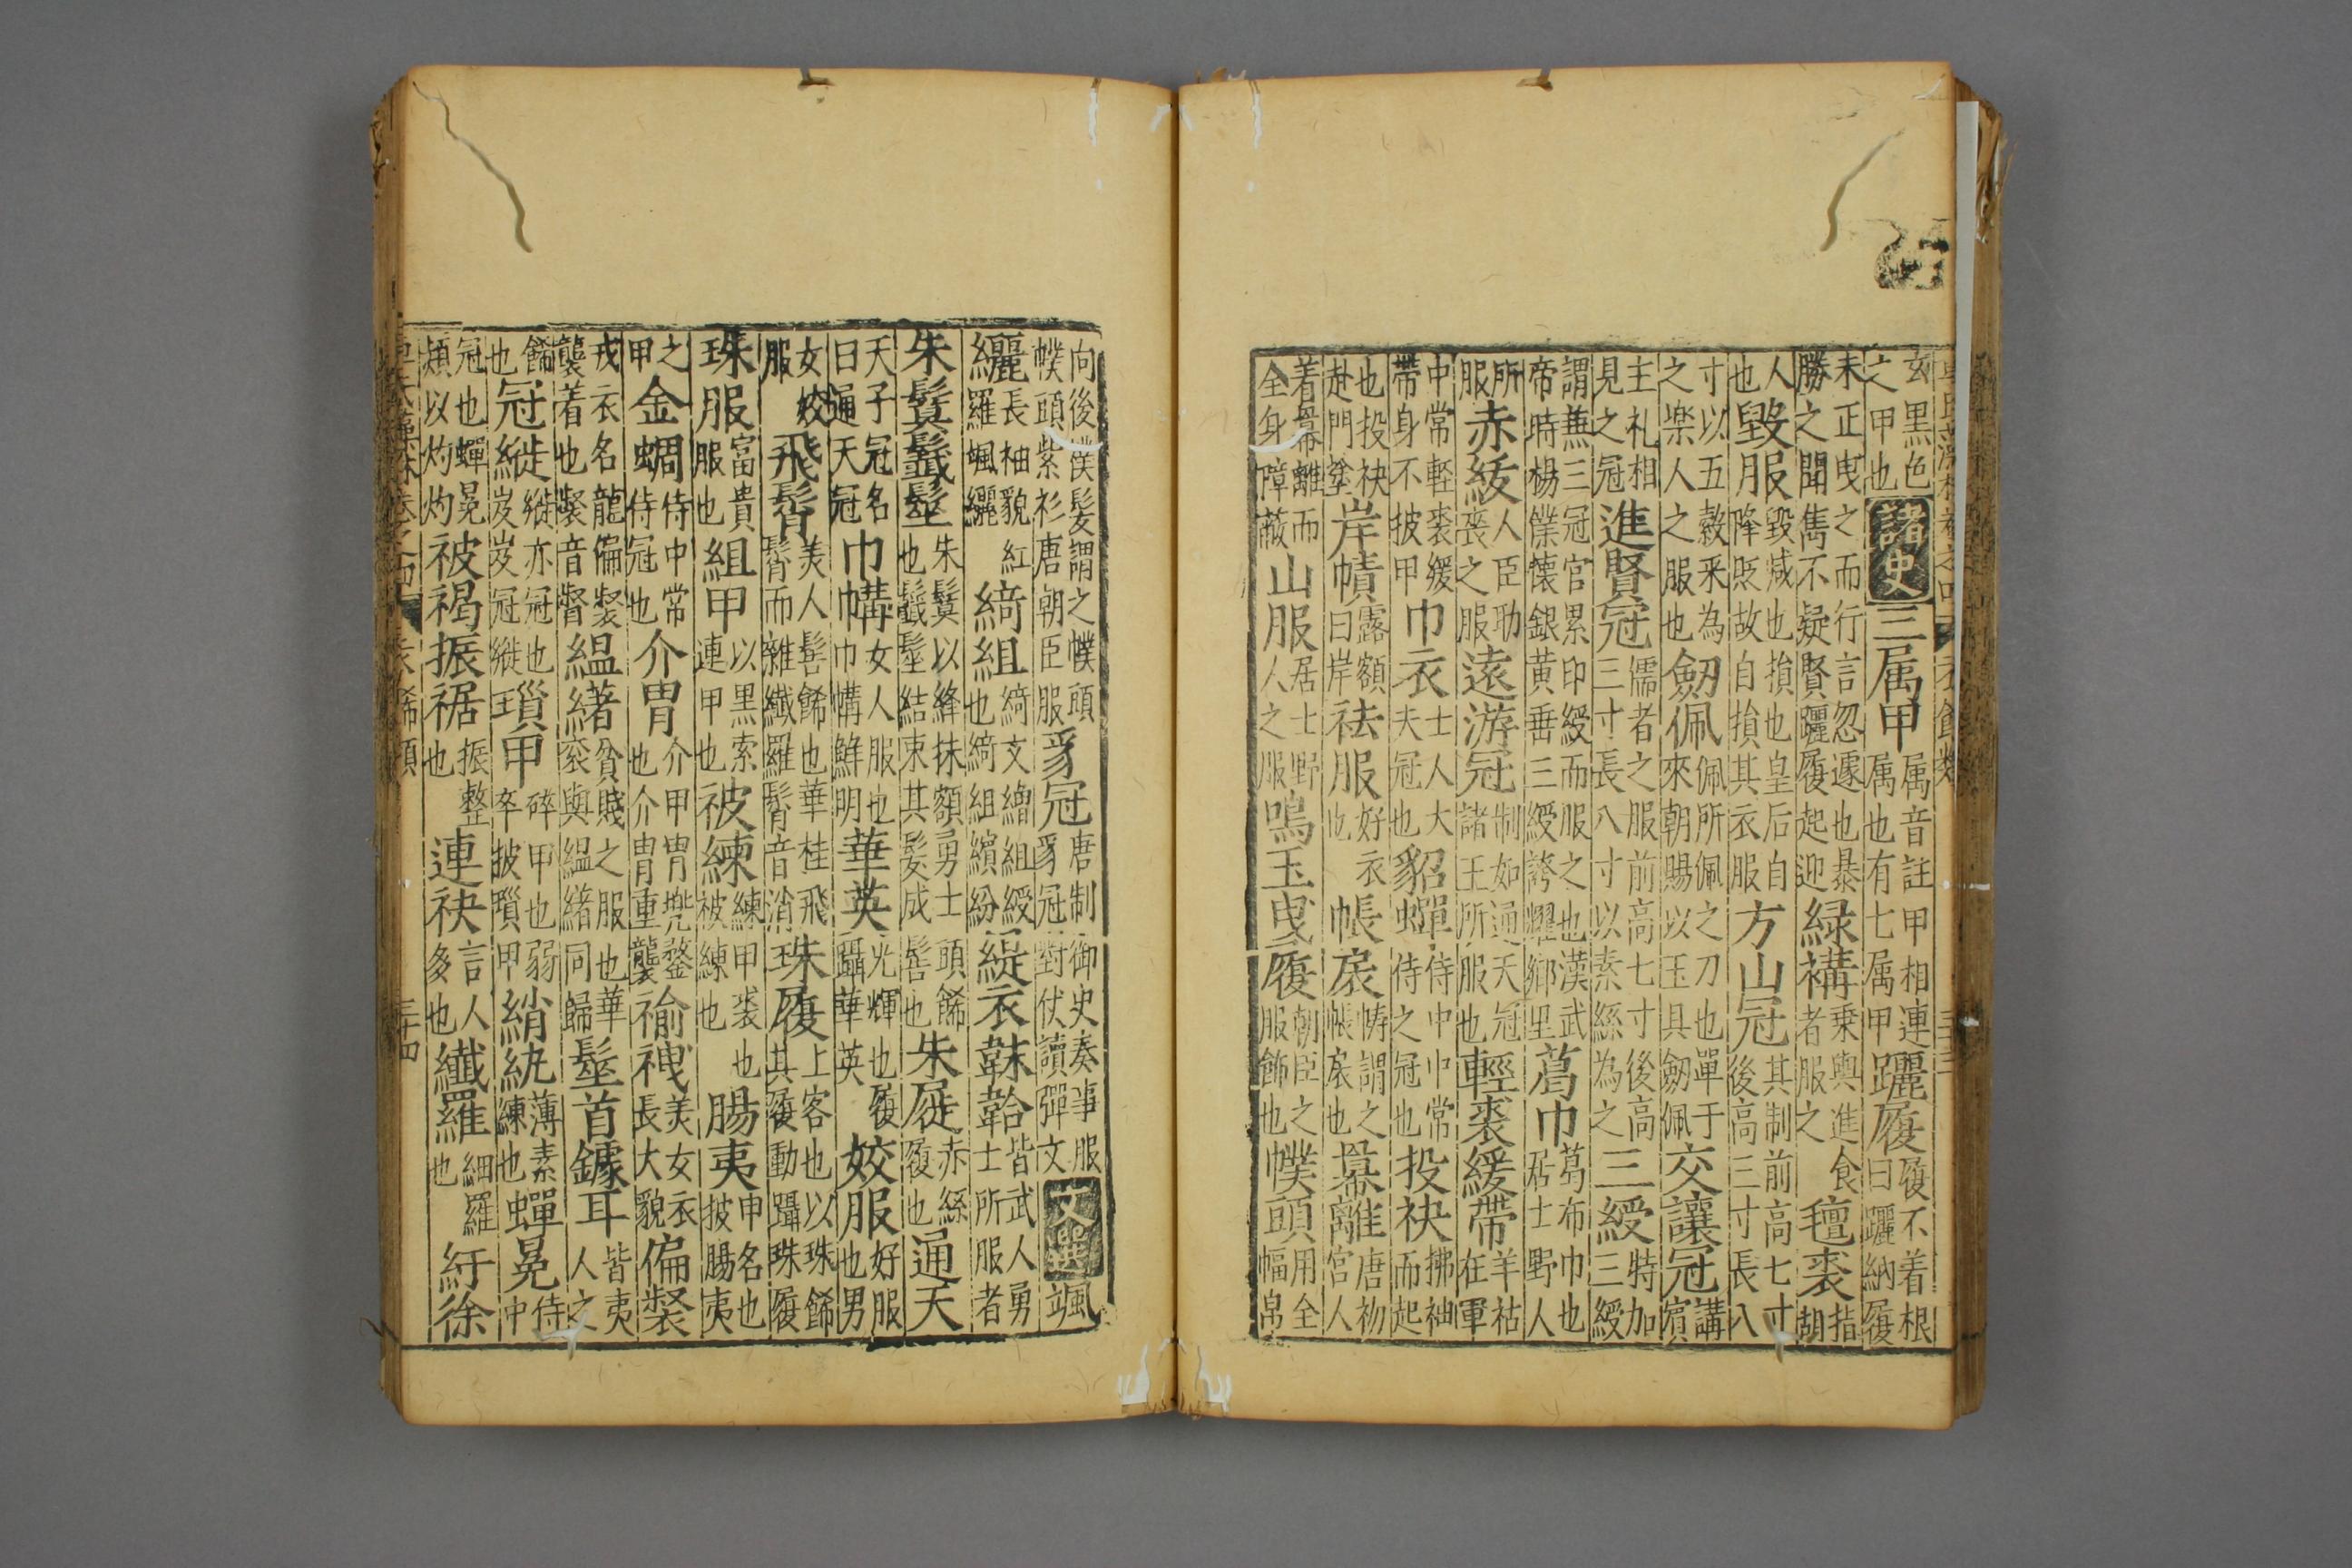 玄黑色之甲也諸史三属甲属音註甲相連属也有七属甲躧履履不着根曰躧納履
未正曳之而行言忽遽也暴勝之聞雋不疑賢躧履起迎緑褠乗輿進食者服之氊裘指胡
人也毀服毀减也損也皇后自降貶故自損其衣服方山冠其制前高七寸後高三寸長八
寸以五穀采為之楽人之服也劒佩佩所佩之刀也單于來朝賜以玉具劒佩交讓冠講賔
主礼相見之冠進賢冠儒者之服前高七寸後高三寸長八寸以素絲為之三綬特加三綬
謂蕪三冠官累印綬而服之也漢武帝時楊僕懐銀黄垂三綬誇耀鄉里葛巾葛布巾也居士野人
所服赤紱人臣助喪之服逺游冠制如通天冠諸王所服也輕裘緩帶羊祜在軍
中常軽裘緩帶身不披甲巾衣士人大夫冠也貂蟬侍中中常侍之冠也投袂拂袖而起
也投袂赴門塗岸幘露額曰岸袪服好衣也帳扆帳謂之帳扆也冪離唐初宫人
着冪離而全身障蔽山服居士野人之服鳴玉曳履朝臣之服飾也幞頭用全幅帛
向後僕髪謂之幞頭幞頭紫衫唐朝臣服豸冠唐制御史奏事服豸冠對伏讀彈文文選颯
纚長袖貌紅羅颯纚綺組綺文繒組綬也綺組繽紛緹衣韎韐皆武人勇士所服者
朱鬕䰐髽朱鬕以絳抹額勇士頭餙也䰐髽結束其髪成髻也朱屣赤絲履也通天
天子冠名曰通天冠巾幬女人服也巾幬鮮明華英光輝也履躡華英姣服好服也男
女姣服飛髾美人髻餙也華桂飛髾而雜纖羅髾音消珠履上客也以珠餙其履動躡珠履
珠服富貴服也組甲以黒索連甲也被練練甲裘也被練也腸夷甲名也披腸夷
之甲金蜩侍中常侍冠也介胄介甲胄兠鍪也介胄重襲褕袣美女衣長大貌偏裻
戎衣名龍偏裻襲着也裻音督緼緒貧賤之服也華衮與緼緒同歸髽首鐻耳皆夷人之
餙也冠縰縰亦冠也岌岌冠縰瑣甲碎甲也弱卒披瑣甲綃紈薄素練也蟬冕侍中
冠也蟬冕熲以灼灼被褐振裾振整也連袂言人多也纖羅細羅也紆徐
衣餙類 三十四